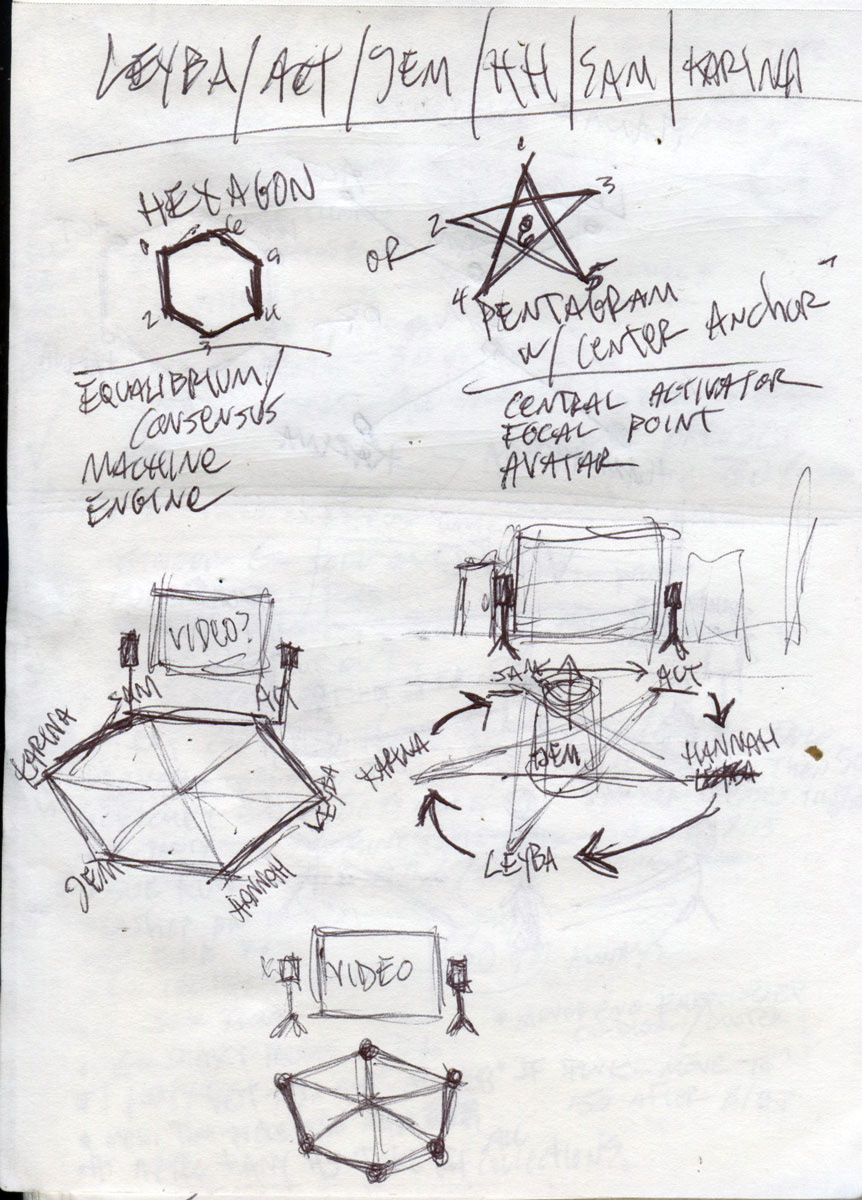 LEYBA / ACT / JEM / HH / SAM / KARINA
HEXAGON
1 6 5 4 3 2
OR
1 3 2 6 4 5
PENTAGRAM
W/ CENTER ANCHOR
EQUALIBRIUM/
CONSENSUS
MACHINE
ENGINE
CENTRAL ACTIVATOR
FOCAL POINT
AVATAR
VIDEO?
SAM ACT
KARINA
LEYBA
JEM
HANNAH
SAM ACT
KARINA JEM HANNAH
LEYBA
LEYBA
VIDEO